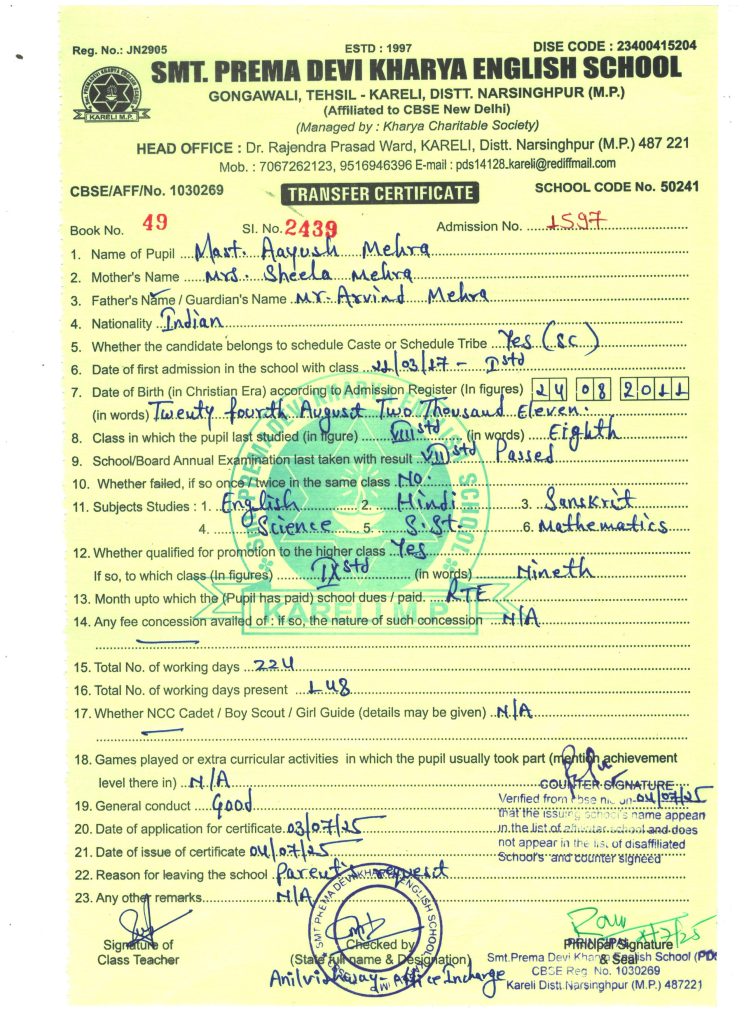 Reg. No.: JN2905 ESTD : 1997 DISE CODE : 23400415204
SMT. PREMA DEVI KHARYA ENGLISH SCHOOL
GONGAWALI, TEHSIL - KARELI, DISTT. NARSINGHPUR (M.P.)
(Affiliated to CBSE New Delhi)
(Managed by : Kharya Charitable Society)
HEAD OFFICE : Dr. Rajendra Prasad Ward, KARELI, Distt. Narsinghpur (M.P.) 487 221
Mob. : 7067262123, 9516946396 E-mail : pds14128.kareli@rediffmail.com
CBSE/AFF/No. 1030269 TRANSFER CERTIFICATE SCHOOL CODE No. 50241
Book No. 49 Sl. No. 2439 Admission No. 1597
1. Name of Pupil Mast. Aayush Mehra
2. Mother's Name Mrs. Sheela Mehra
3. Father's Name / Guardian's Name Mr. Arvind Mehra
4. Nationality Indian
5. Whether the candidate belongs to schedule Caste or Schedule Tribe Yes (SC)
6. Date of first admission in the school with class 22/03/17 - Istd
7. Date of Birth (in Christian Era) according to Admission Register (In figures) 24 08 2011
(in words) Twenty fourth August Two Thousand Eleven.
8. Class in which the pupil last studied (in figure) VIII std (in words) Eighth
9. School/Board Annual Examination last taken with result VIII std Passed
10. Whether failed, if so once / twice in the same class No.
11. Subjects Studies : 1. English 2. Hindi 3. Sanskrit
4. Science 5. S.St. 6. Mathematics
12. Whether qualified for promotion to the higher class Yes
If so, to which class (In figures) IX std (in words) Nineth
13. Month upto which the (Pupil has paid) school dues / paid. RTE
14. Any fee concession availed of : if so, the nature of such concession N/A
15. Total No. of working days 224
16. Total No. of working days present 148
17. Whether NCC Cadet / Boy Scout / Girl Guide (details may be given) N/A
18. Games played or extra curricular activities in which the pupil usually took part (mention achievement
level there in) N/A
COUNTER SIGNATURE
19. General conduct Good
Verified from cbse nic on 04/07/25
that the issuing school's name appean
20. Date of application for certificate 03/07/25
in the list of school and does
21. Date of issue of certificate 04/07/25
not appear in the list of disaffiliated
School's and counter signeed
22. Reason for leaving the school Parent's request
23. Any other remarks N/A
SMT PREMA DEVI KHARYA ENGLISH SCHOOL
8/7/25
Signature of Checked by PRINCIPAL Principal Signature
Class Teacher (State full name & Designation) & Seal
Smt.Prema Devi Kharya English School (PDS
Office Incharge CBSE Reg. No. 1030269
Kareli Distt.Narsinghpur (M.P.) 487221
SMT PREMA DEVI KHARYA ENGLISH SCHOOL
KARELI M.P.